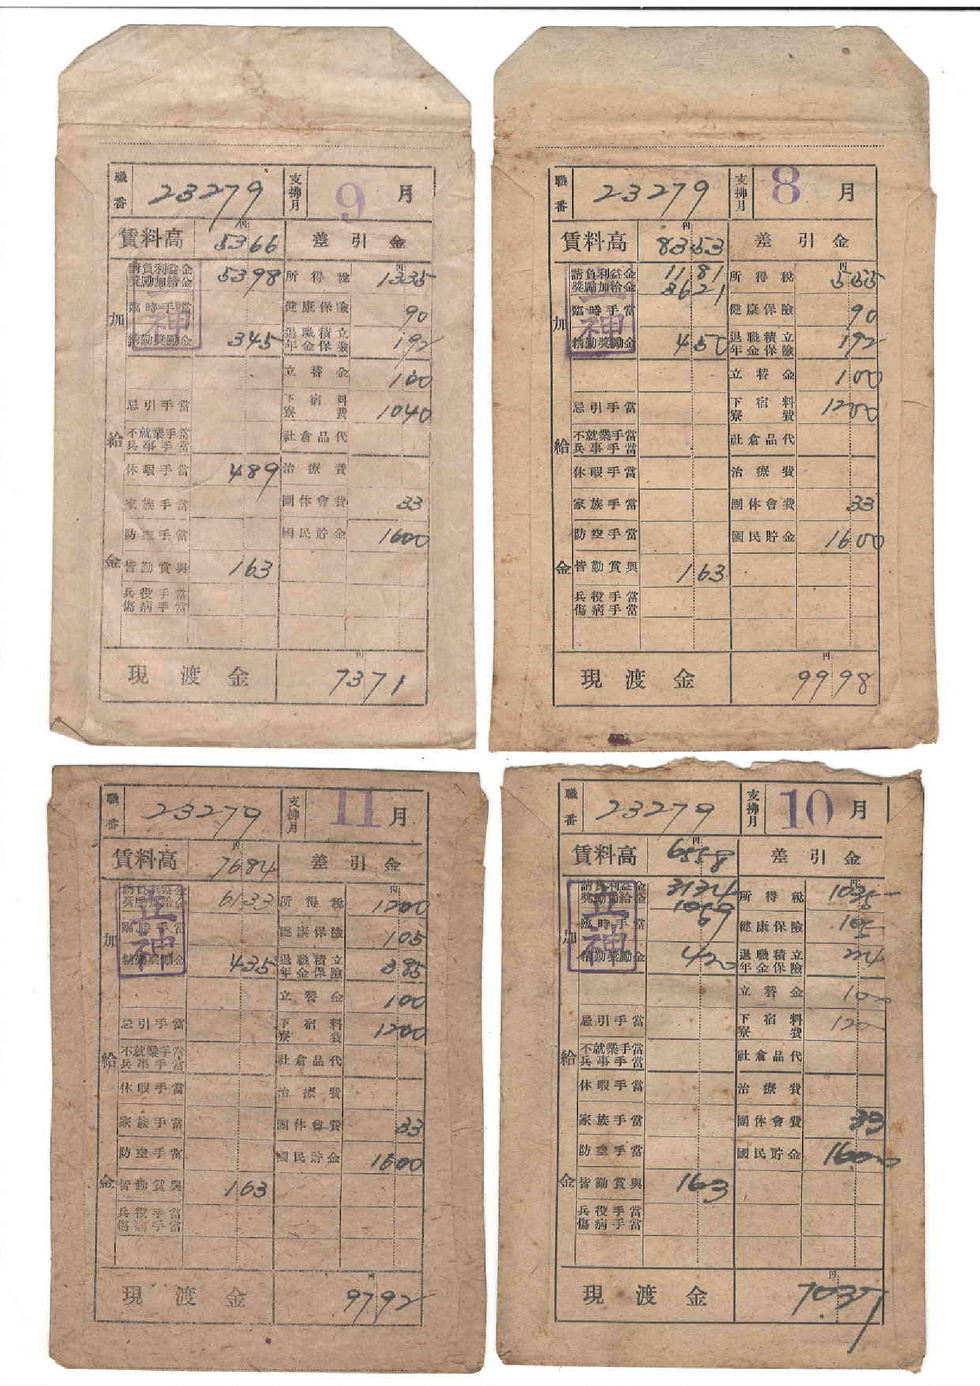 職番 23279 支拂月 9 月
賃料高 円 5366 差引金
請負利益金 獎勵加給金 5398 所得税 円 1335
臨時手當 健康保險 90
精勤獎勵金 345 退職積立 年金保險 192
立替金 100
忌引手當 下宿料 寮費 1040
不就業手當 兵事手當 社倉品代
休暇手當 489 治療費
家族手當 團体會費 33
防空手當 國民貯金 1600
皆勤賞與 163
兵役手當 傷病手當
加給金
神
現渡金 円 7371
職番 23279 支拂月 8 月
賃料高 円 8353 差引金
請負利益金 1181 獎勵加給金 3621 所得税 円 555
臨時手當 健康保險 90
精勤獎勵金 450 退職積立 年金保險 192
立替金 100
忌引手當 下宿料 寮費 1200
不就業手當 兵事手當 社倉品代
休暇手當 治療費
家族手當 團体會費 33
防空手當 國民貯金 1600
皆勤賞與 163
兵役手當 傷病手當
加給金
神
現渡金 円 9998
職番 23279 支拂月 11 月
賃料高 円 7684 差引金
請負利益金 獎勵加給金 6133 所得税 円 1200
臨時手當 健康保險 105
精勤獎勵金 435 退職積立 年金保險 385
立替金 100
忌引手當 下宿料 寮費 1200
不就業手當 兵事手當 社倉品代
休暇手當 治療費
家族手當 團体會費 33
防空手當 國民貯金 1600
皆勤賞與 163
兵役手當 傷病手當
加給金
立神
現渡金 円 9792
職番 23279 支拂月 10 月
賃料高 円 6558 差引金
請負利益金 3134 獎勵加給金 1059 所得税 円 1035
臨時手當 健康保險 105
精勤獎勵金 420 退職積立 年金保險 224
立替金 100
忌引手當 下宿料 寮費 1200
不就業手當 兵事手當 社倉品代
休暇手當 治療費
家族手當 團体會費 33
防空手當 國民貯金 1600
皆勤賞與 163
兵役手當 傷病手當
加給金
立神
現渡金 円 7037